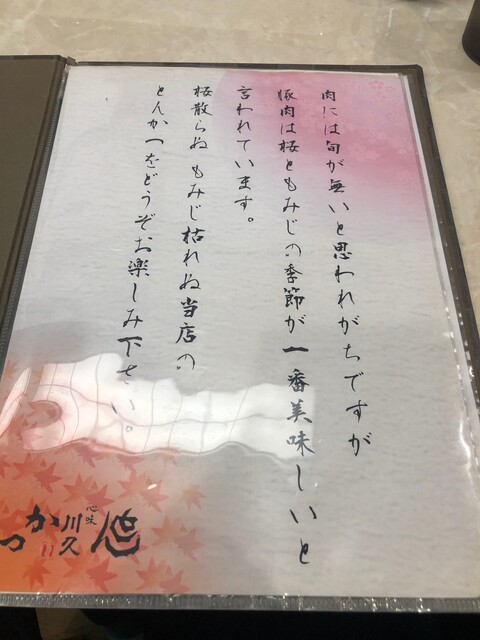 肉には旬が無いと思われがちですが
豚肉は桜ともみじの季節が一番美味しいと
言われています。
桜散らぬ もみじ枯れぬ当店の
とんかつをどうぞお楽しみ下さい。
心味
川久
かつ